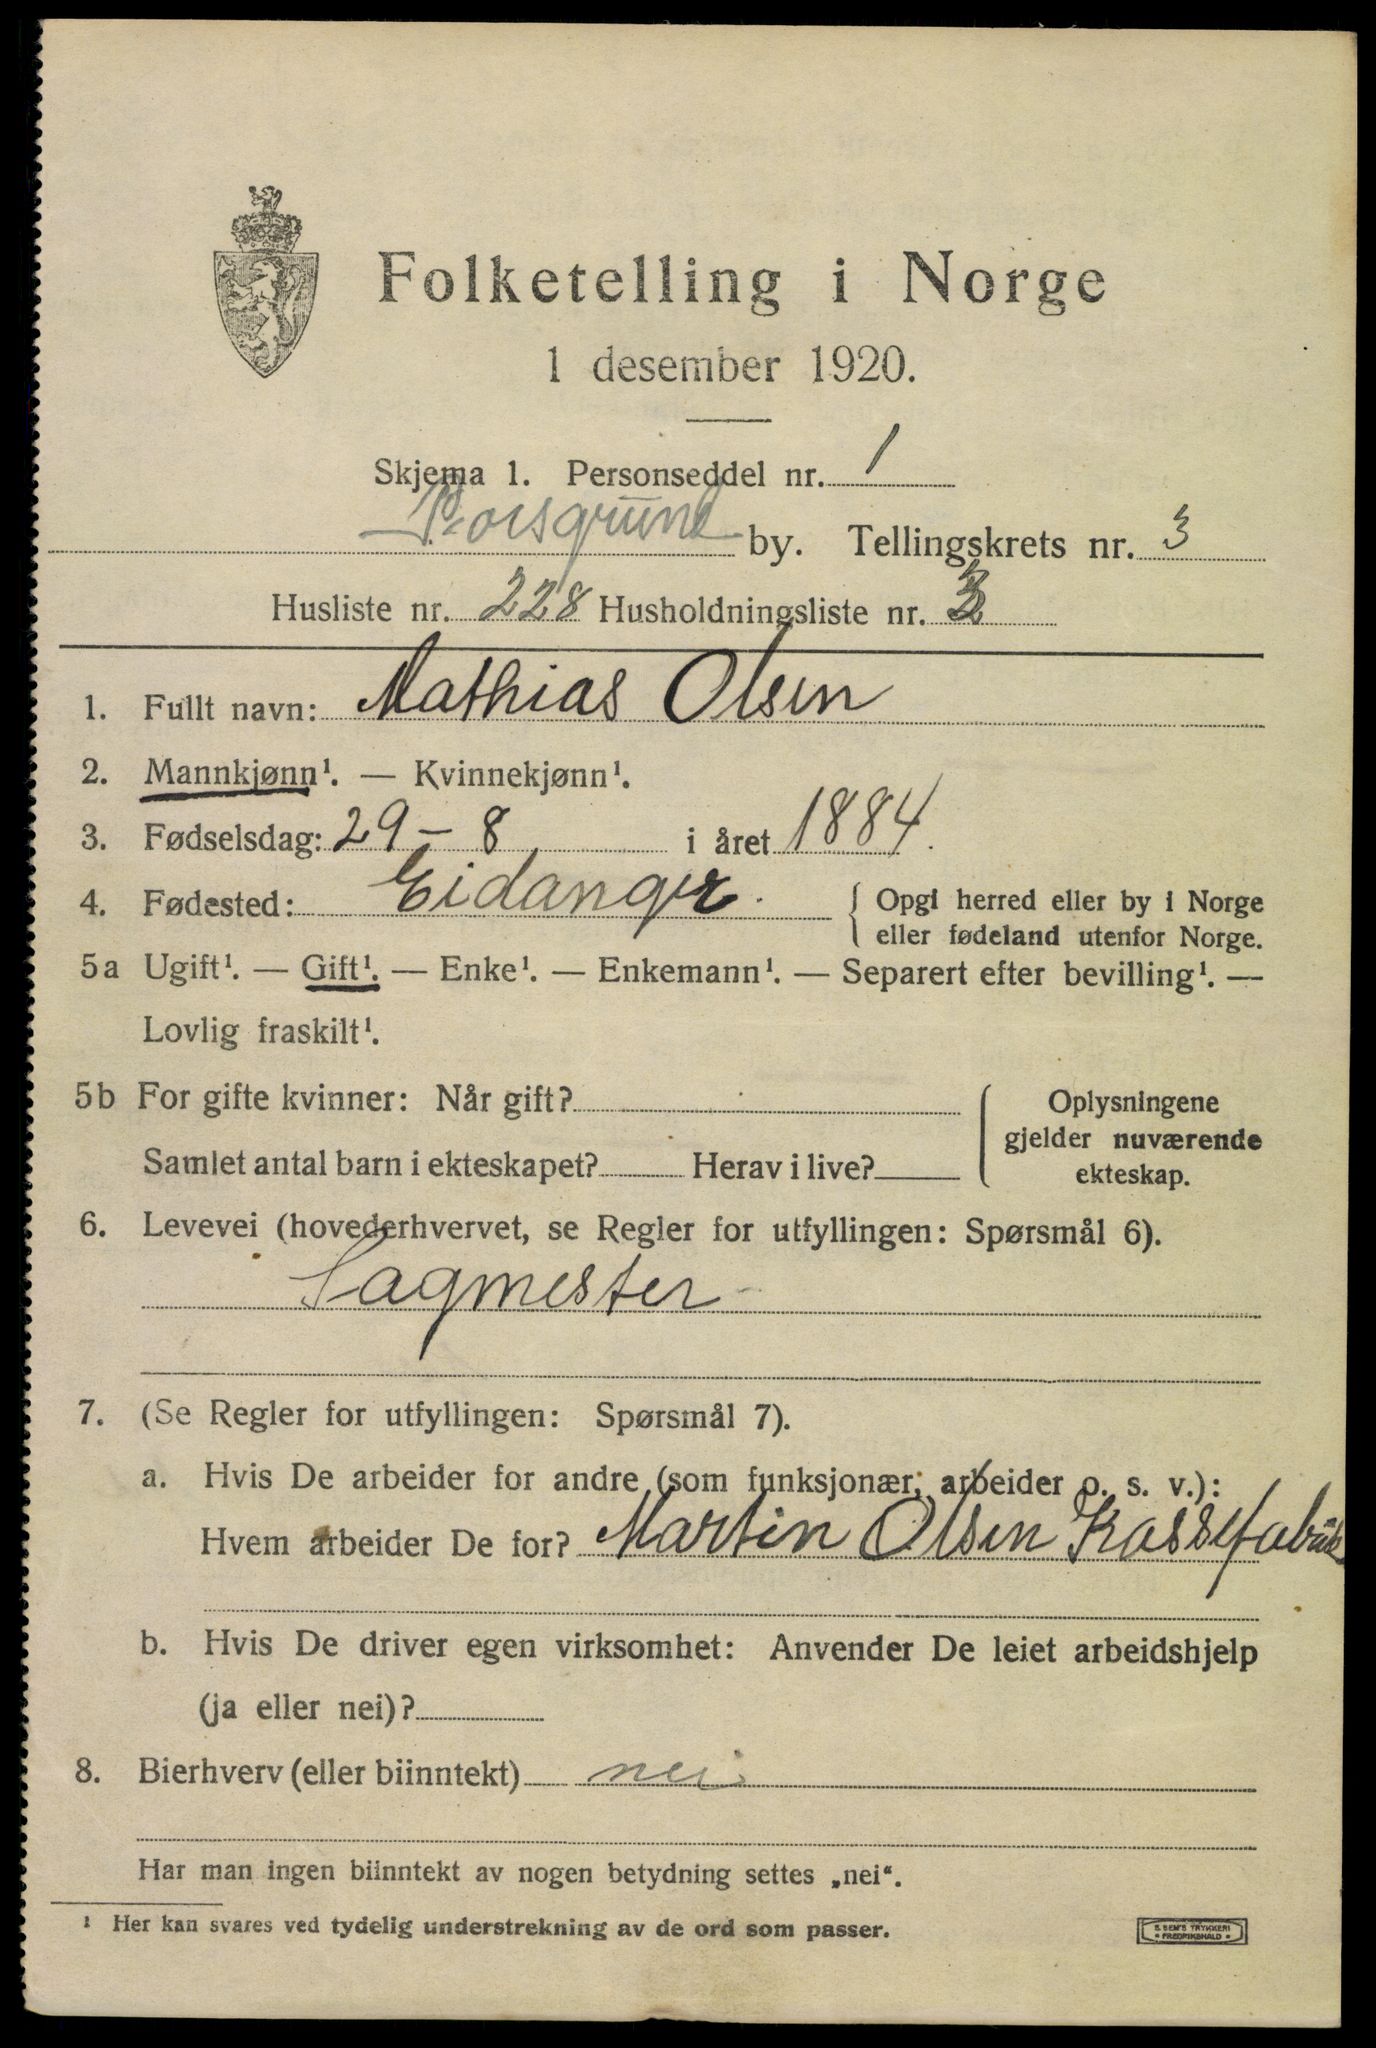 Folketelling i Norge
1 desember 1920.
Skjema 1. Personseddel nr. 1
Porsgrund by. Tellingskrets nr. 3
Husliste nr. 228 Husholdningsliste nr.
1. Fullt navn: Mathias Olsen
2. Mannkjønn¹. — Kvinnekjønn¹.
3. Fødselsdag: 29 – 8 i året 1884.
4. Fødested: Eidanger. { Opgi herred eller by i Norge
eller fødeland utenfor Norge.
5a Ugift¹. — Gift¹. — Enke¹. — Enkemann¹. — Separert efter bevilling¹. —
Lovlig fraskilt¹.
5b For gifte kvinner: Når gift? { Oplysningene
gjelder nuværende
Samlet antal barn i ekteskapet? Herav i live? ekteskap.
6. Levevei (hovederhvervet, se Regler for utfyllingen: Spørsmål 6).
Sagmester
7. (Se Regler for utfyllingen: Spørsmål 7).
a. Hvis De arbeider for andre (som funksjonær, arbeider o. s. v.):
Hvem arbeider De for? Martin Olsen Kassefabrik
b. Hvis De driver egen virksomhet: Anvender De leiet arbeidshjelp
(ja eller nei)?
8. Bierhverv (eller biinntekt) nei
Har man ingen biinntekt av nogen betydning settes „nei“.
¹ Her kan svares ved tydelig understrekning av de ord som passer.
E. SEM'S TRYKKERI
• FREDRIKSHALD •